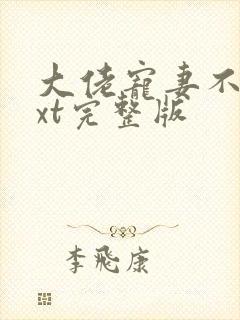 大佬寵妻不
xt完整版
李飛康